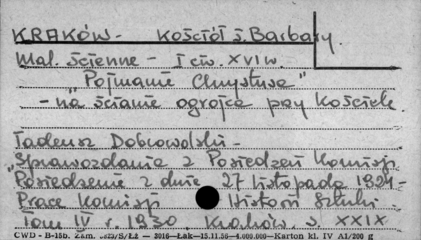 KRAKÓW - Kościół ś. Barbary.
Mal. ścienne - I ćw. XVI w.
"Pojmanie Chrystusa"
- na ścianie ogrojca przy Kościele.
Tadeusz Dobrowolski -
"Sprawozdania z Posiedzeń Komisji
Posiedzenie z dnia 27 listopada 1924 -
Prace Komisji Historii Sztuki
Tom IV r. 1930, Kraków. s. XXIX
CWD - B-15b. Zam. S/Łż — 3016—Łak—15.11.56—4.000.000—Karton kl. IV A1/200 g